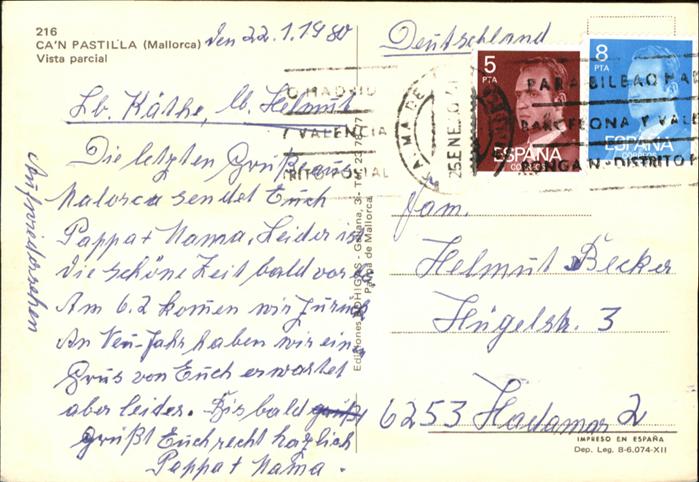 216
CA'N PASTILLA (Mallorca)
Vista parcial
den 22.1.1980
Deutschland
5
PTA
ESPAÑA
CORREOS
8
PTA
ESPAÑA
CORREOS
O MADRID
Y VALENCIA
RITO POSTAL
25 ENE
PARA BILBAO MAD
BARCELONA Y VALE
PONGA N.º DISTRITO P
Lb. Käthe, lb. Helmut
Die letzten Grüße aus
Malorca sendet Euch
Pappa + Mama, Leider ist
die schöne Zeit bald vor
Am 6.2 komen wir zurück
An Neu-Jahr haben wir ein
Grus von Euch erwartet
aber leider. Bis bald grüßt
grüßt Euch recht herzlich
Pappa + Mama.
Aufwiedersehen
Ediciones BOHIGAS - Gabana, 3 - Tel. 23 78 77
Palma de Mallorca
Fam.
Helmut Becker
Hügelstr. 3
6253 Hadamar 2
IMPRESO EN ESPAÑA
Dep. Leg. B-6.074-XII